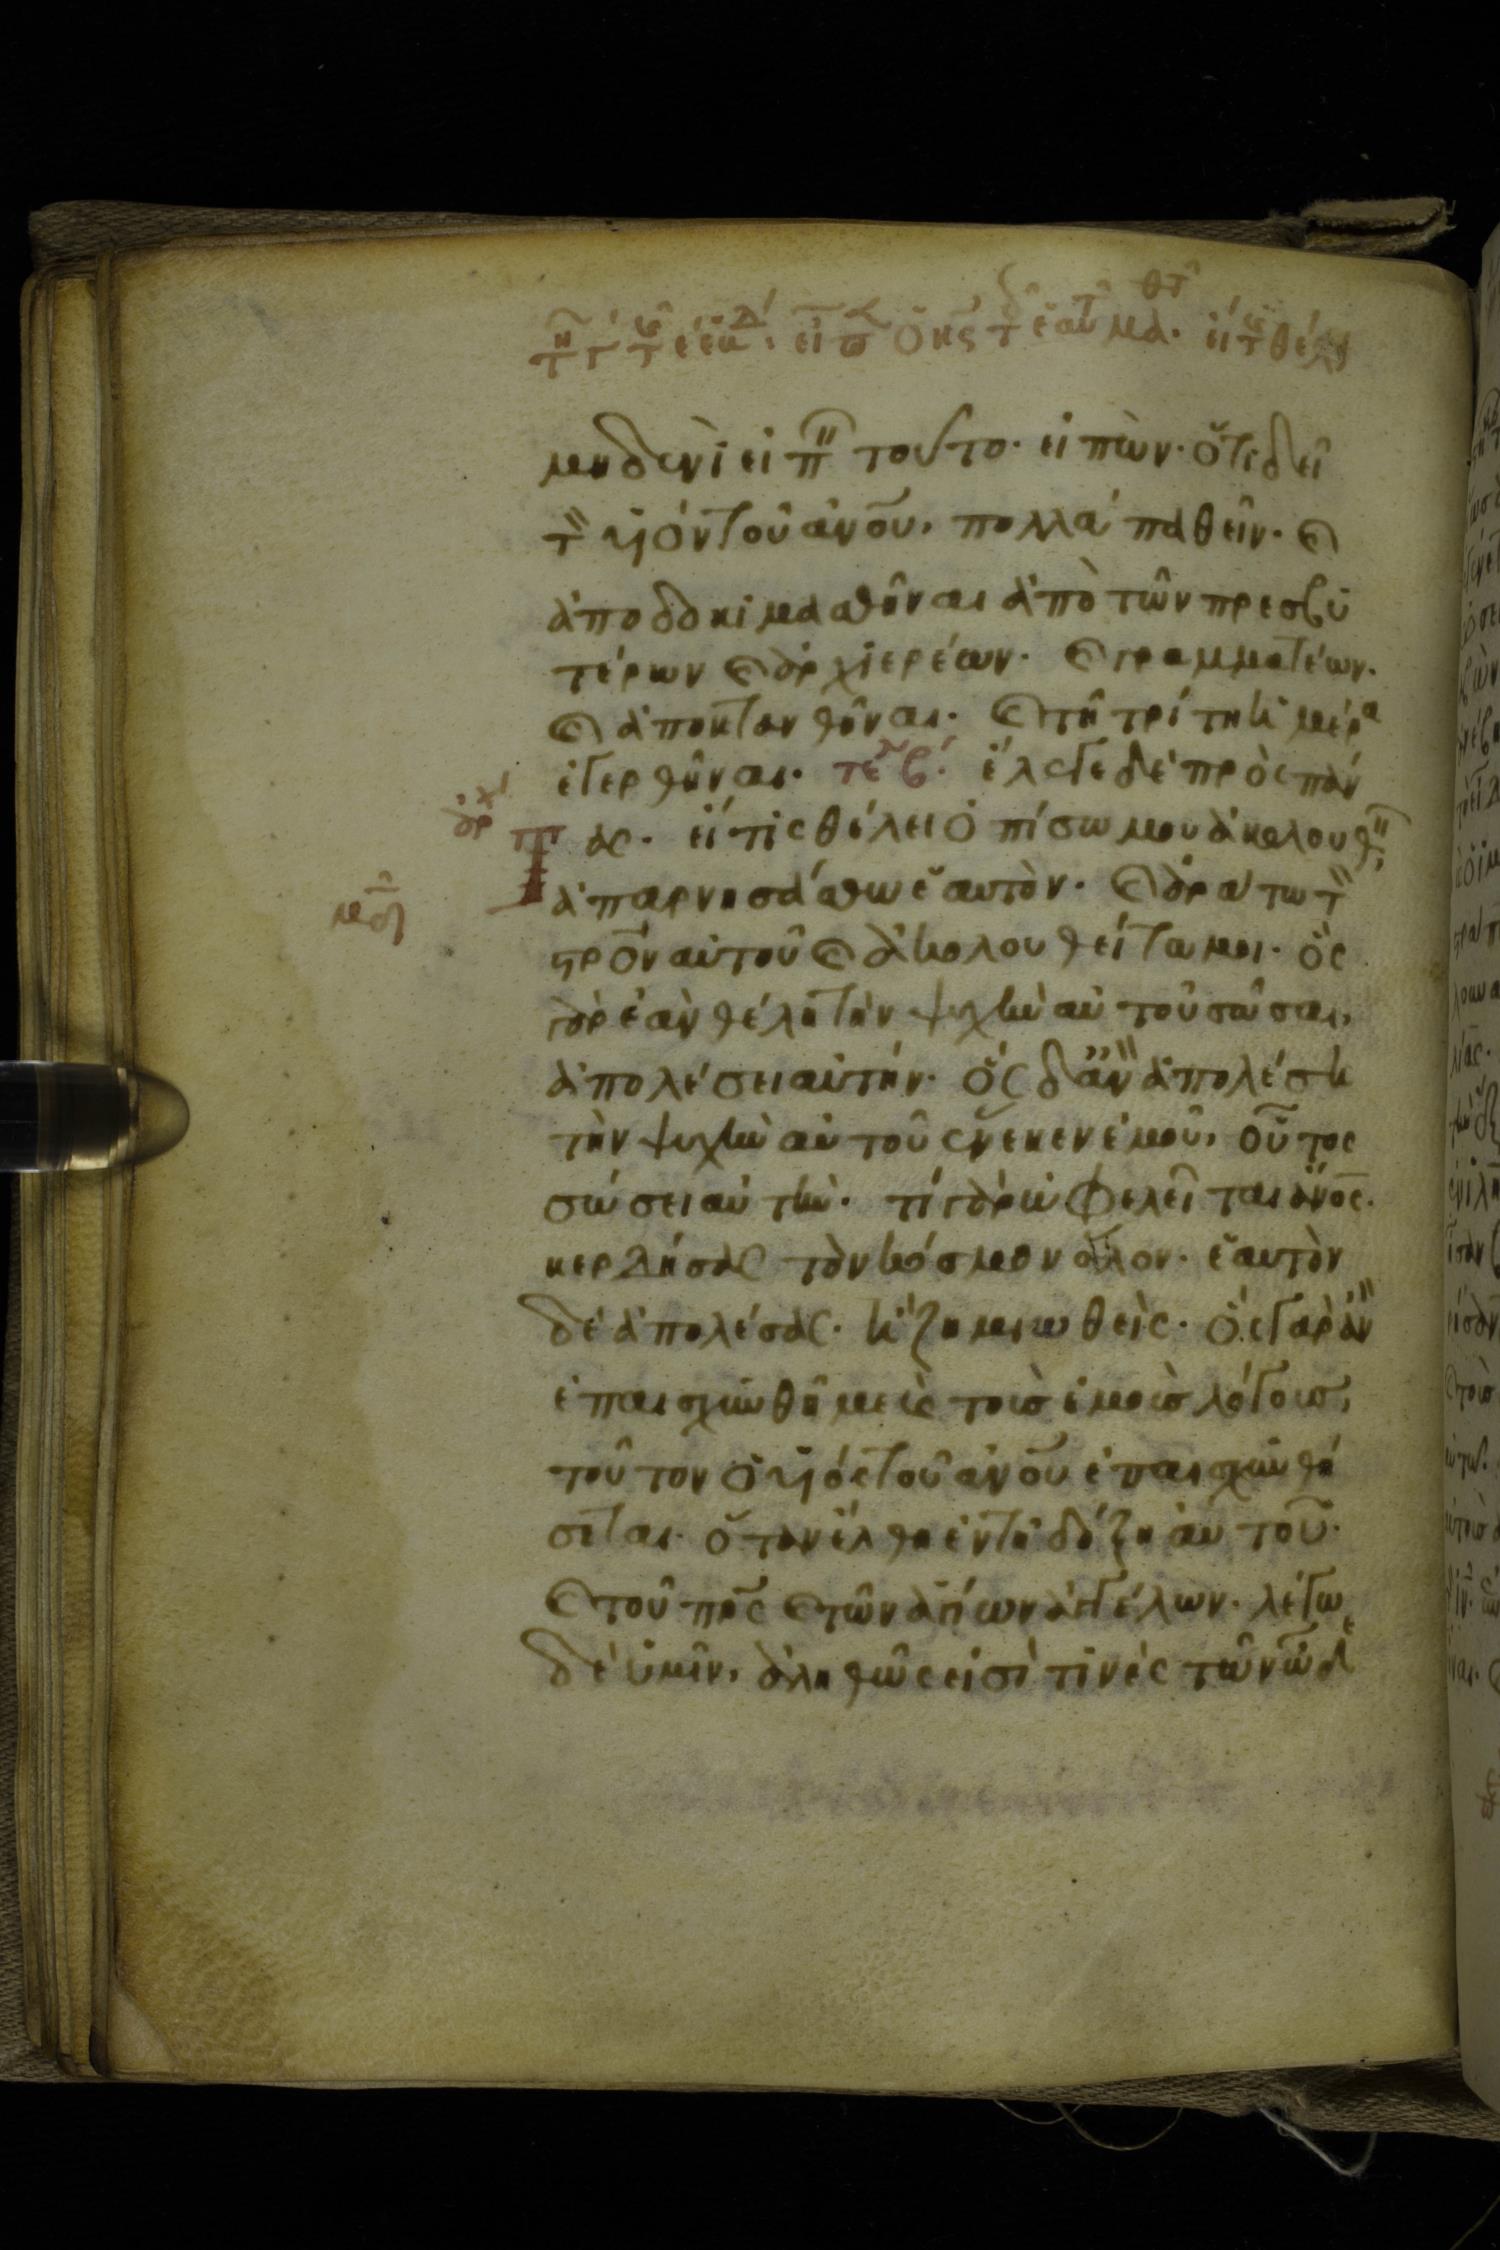 μηδενὶ εἰπ͂ῖν τοῦτο· εἰπὼν· ὅτι δεῖ
τὸν υἱὸν τοῦ ἀνου, πολλὰ παθεῖν· καὶ
ἀποδοκιμασθῆναι ἀπὸ τῶν πρεσβυ
τέρων καὶ ἀρχιερέων· καὶ γραμματέων·
καὶ ἀποκτανθῆναι· καὶ τῆ τρίτη ἡμέρα
ἐγερθῆναι· τέ β· ἔλεγε δὲ πρὸς πάν
ἀρχ τας· εἴ τις θέλει ὀπίσω μου ἀκολουθ
ἀπαρνησάσθω ἑαυτὸν· καὶ ἀράτω τὸν
στρον αὐτοῦ καὶ ἀκολουθείτω μοι· ὃς
γὰρ ἐὰν θέλη τὴν ψυχὴν αὐτοῦ σῶσαι,
ἀπολέσει αὐτήν· ὃς δ' ἂν ἀπολέση
τὴν ψυχὴν αὐτοῦ ἕνεκεν ἐμοῦ, οὗτος
σώσει αὐτὴν· τί γὰρ ὠφελεῖται ἄνος·
κερδήσας τὸν κόσμον ὅλον· ἑαυτὸν
δὲ ἀπολέσας· ἢ ζημιωθεὶς· ὃς γὰρ ἂν
ἐπαισχυνθῆ με εἰς τοὺς ἐμοὺς λόγους,
τοῦτον ὁ υἱὸς τοῦ ἀνου ἐπαισχυνθή
σεται· ὅταν ἔλθη ἐν τῆ δόξη αὐτοῦ·
καὶ τοῦ πρς καὶ τῶν ἁγίων ἀγγέλων· λέγω
δὲ ὑμῖν, ἀληθῶς εἰσὶ τινὲς τῶν ὧδε